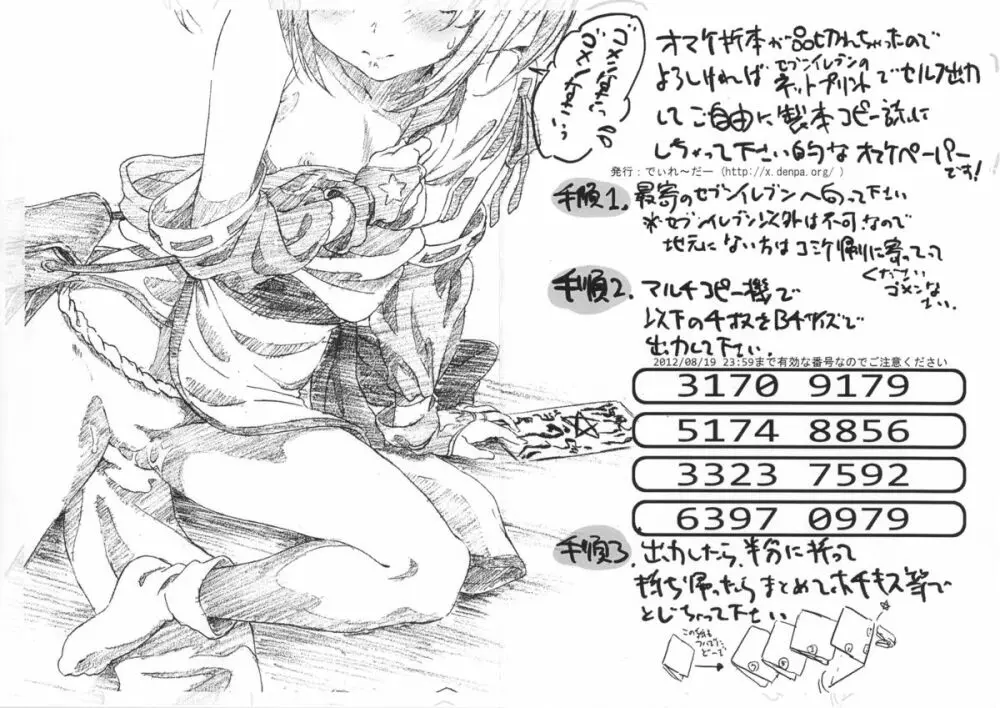 オマケ折本が品切れちゃったので
よろしければセブンイレブンのネットプリントでセルフ出力
してご自由に製本コピー誌に
しちゃって下さい的なオマケペーパーです!
発行:でぃれ〜だー (http://x.denpa.org/ )
ゴメンなさい
ゴメンなさい
手順1. 最寄のセブンイレブンへ向って下さい
※セブンイレブン以外は不可なので
地元にない方はコミケ帰りに寄ってって
ください
ゴメンな
さい。
手順2. マルチコピー機で
以下の4枚をB4サイズで
出力して下さい.
2012/08/19 23:59まで有効な番号なのでご注意ください
3170 9179
5174 8856
3323 7592
6397 0979
手順3. 出力したら、半分に折って
持ち帰ったらまとめてホチキス等で
とじちゃって下さい
この紙も